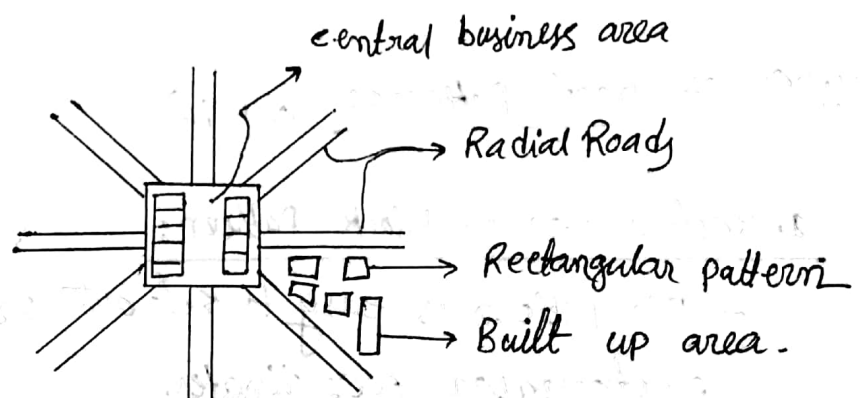 central business area
Radial Roads
Rectangular pattern
Built up area.